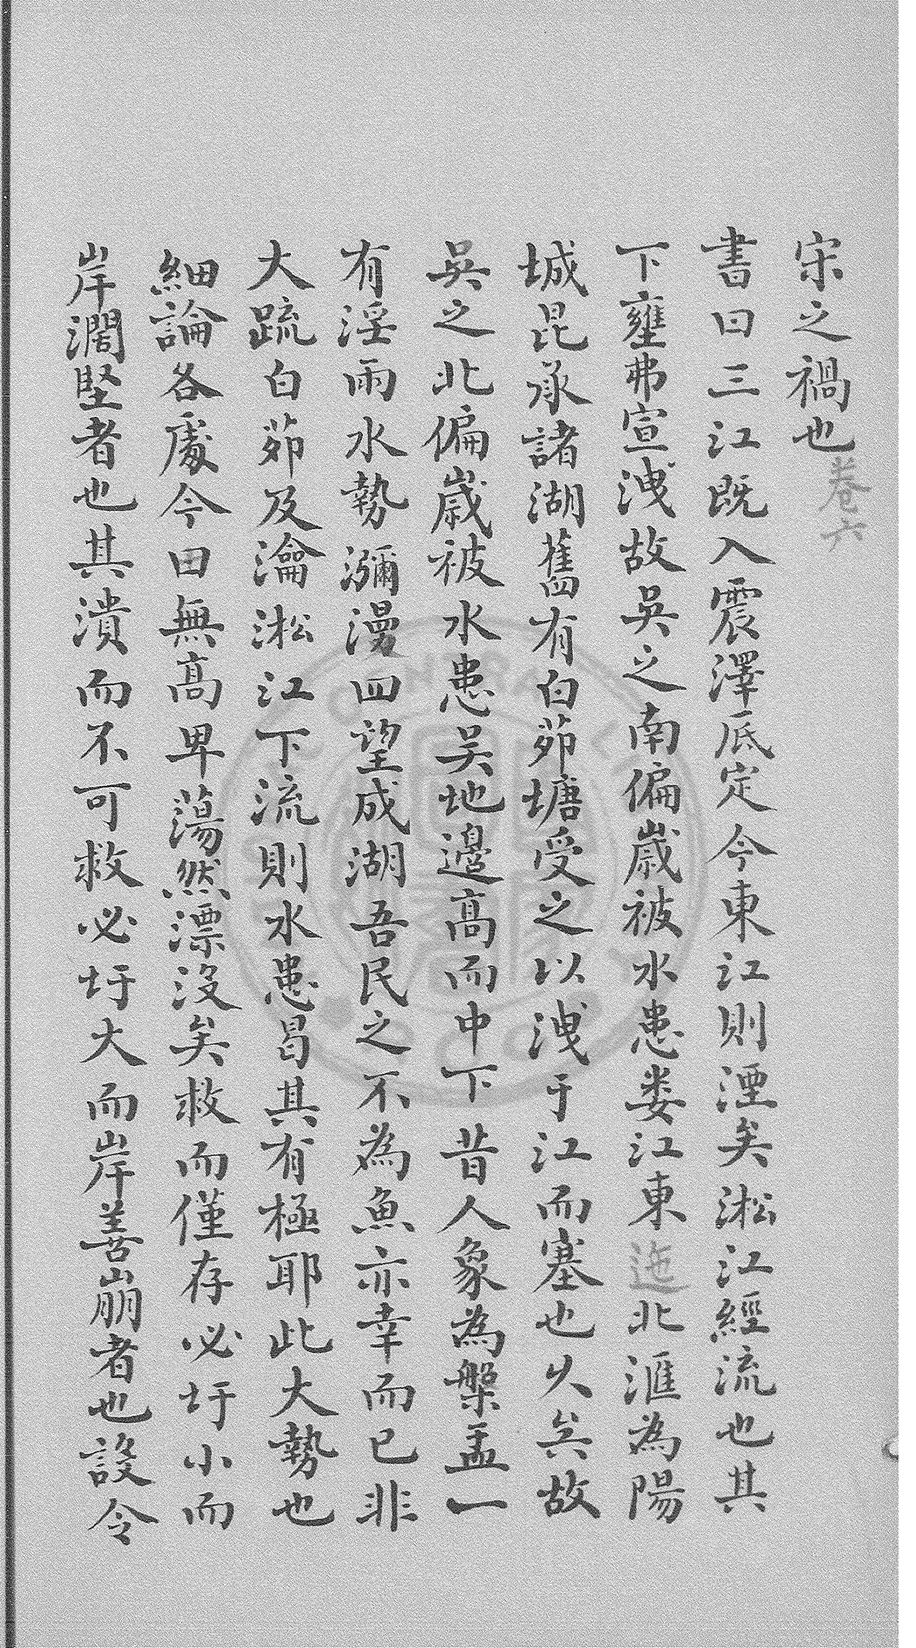 宋之禍也卷六
書曰三江既入震澤底定今東江則湮矣淞江經流也其
下壅弗宣洩故吳之南偏嵗被水患娄江東迤北滙為陽
城昆承諸湖舊有白茆塘受之以洩于江而塞也乆矣故
吳之北偏嵗被水患吳地邉高而中下昔人象為槃盂一
有淫雨水勢瀰漫四望成湖吾民之不為魚亦幸而已非
大疏白茆及瀹淞江下流則水患曷其有極耶此大勢也
細論各處今田無高卑蕩然漂沒矣救而僅存必圩小而
岸濶堅者也其潰而不可救必圩大而岸善崩者也設令